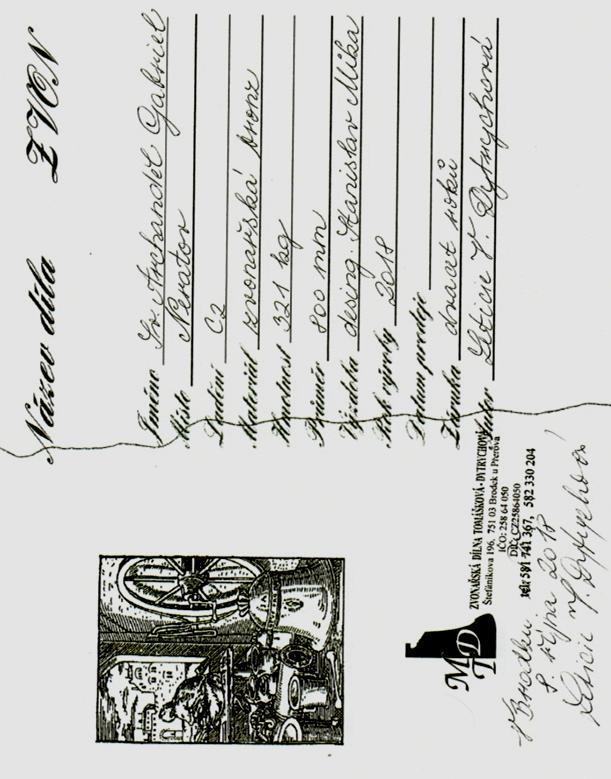 Název díla ZVON
Jméno Sv. Archanděl Gabriel
Místo Neratov
Ladění C2
Materiál zvonařská bronz
Hmotnost 321 kg
Průměr 800 mm
Výzdoba desing. Stanislav Mika
Rok výroby 2018
Datum prodeje
Záruka dvacet roků
Autor Leticie V. Dytrychová
MTD
ZVONAŘSKÁ DÍLNA TOMÁŠKOVÁ - DYTRYCHOVÁ
Štefánikova 196, 751 03 Brodek u Přerova
IČO: 258 64 050
DIČ: CZ25864050
tel: 581 741 367, 582 330 204
V Brodku
8. srpna 2018
Leticie V. Dytrychová